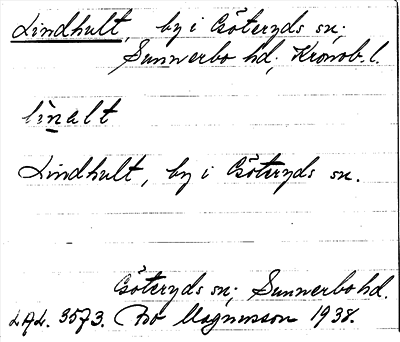 Lindhult, by i Göteryds sn;
Sunnerbo hd; Kronob. l.
lìnalt
Lindhult, by i Göteryds sn.
Göteryds sn; Sunnerbo hd.
LAL. 3573. Bo Magnusson 1938.